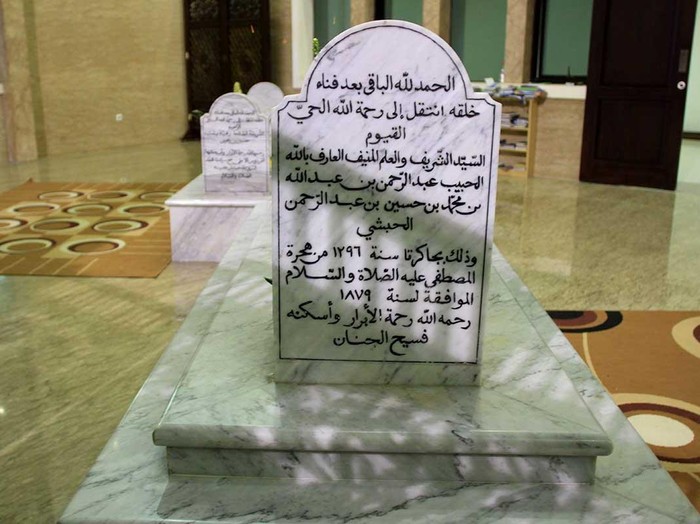 الحمد لله الباقي بعد فناء
خلقه انتقل إلى رحمة الله الحيّ
القيوم
السيّد الشريف والعلم المنيف العارف بالله
الحبيب عبد الرّحمن بن عبد الله
بن محمّد بن حسين بن عبد الرّحمن
الحبشي
وذلك بجاكرتا سنة ١٢٩٦ من هجرة
المصطفى عليه الصّلاة والسّلام
الموافقة لسنة ١٨٧٩
رحمه الله رحمة الأبرار وأسكنه
فسيح الجنان